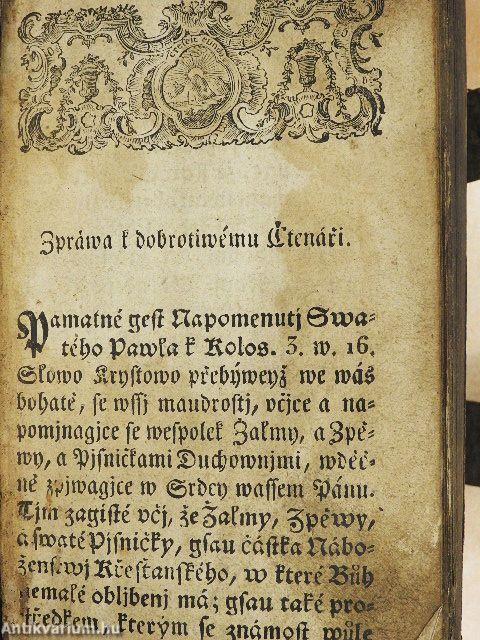 Zpráwa k dobrotiwému Čtenáři.
Pamatné gest Napomenutj Swa-
tého Pawła k Kolos. 3. w. 16.
Słowo Krystowo přebýweyž we wás
bohatě, se wssj maudrostj, včjce a na-
pomjnagjce se wespolek Žalmy, a Zpě-
wy, a Pjsničkami Duchownjmi, wděč-
ně zpjwagjce w Srdcy wassem Pánu.
Tjm zagisté včj, že Žalmy, Zpěwy,
a swaté Pjsničky, gsau částka Nábo-
ženstwj Křestanského, w které Bůh
nemalé obljbenj má; gsau také pro-
středkem, kterým se známost wůle
Antikvarium.hu